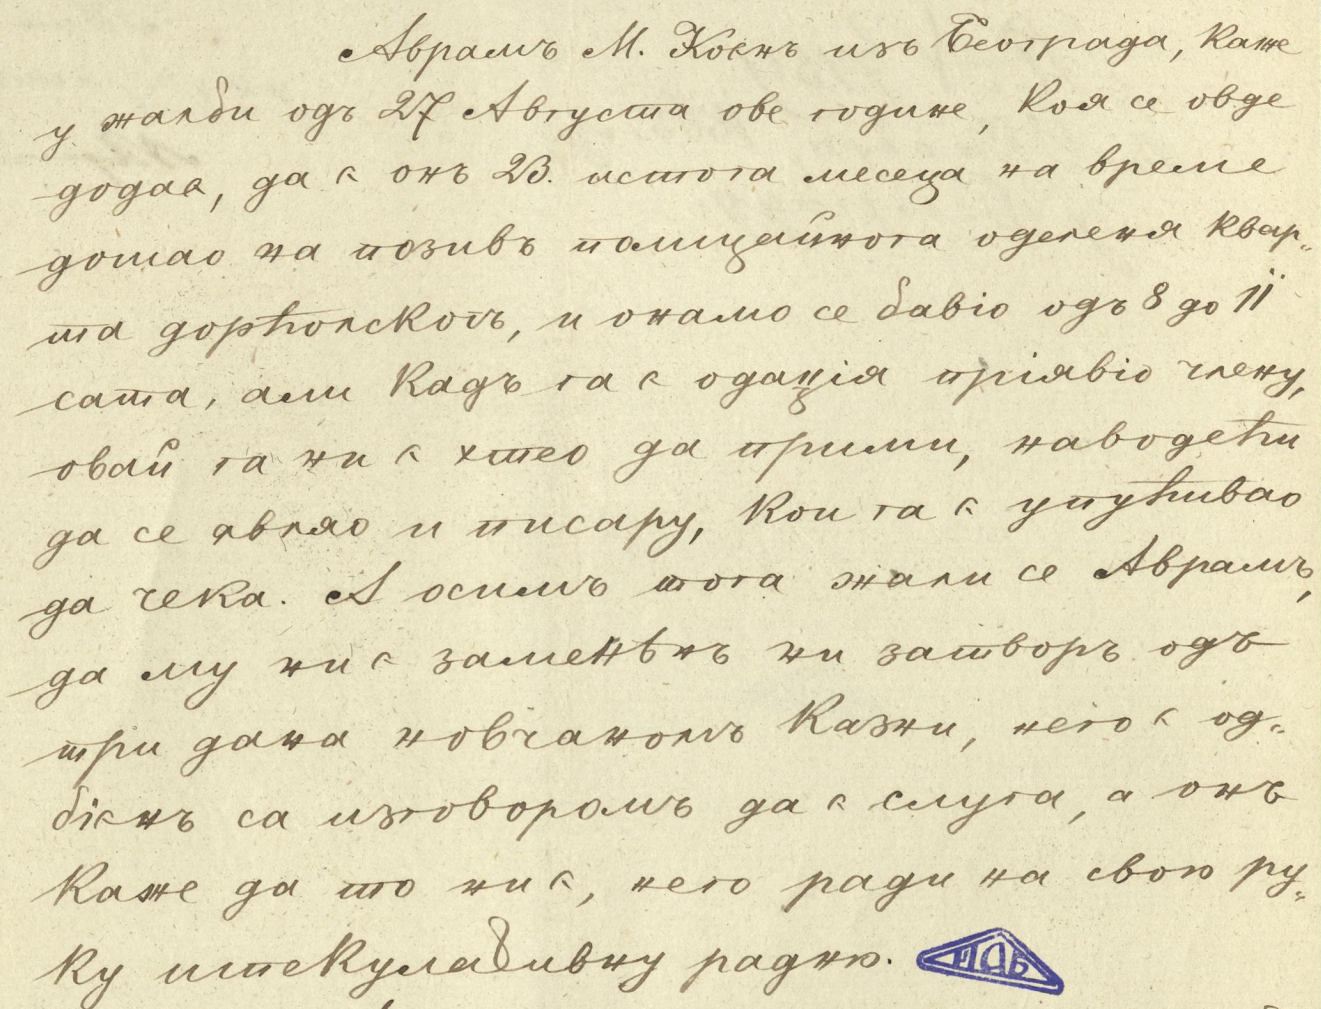 Аврамъ М. Коенъ изъ Београда, каже
у жалби одъ 27 Августа ове године, коя се овде
додає, да є онъ 23. истога месеца на време
дошао на позивъ полицайнога оделеня квар-
та дорћолскогъ, и онамо се бавіо одъ 8 до 11
сата, али кадъ га є одаџія пріявіо члену,
овай га ни є хтео да прими, наводећи
да се являо и писару, кои га є упућивао
да чека. А осимъ тога жали се Аврамъ,
да му ни є замењѣнъ ни затворъ одъ
три дана новчаномъ казни, него є од-
бієнъ са изговоромъ да є слуга, а онъ
каже да то ни є, него ради на свою ру-
ку шпекулативну радню.
ИАБ